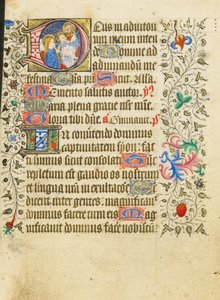 Deus in adiutori
um meum inten
de Domine ad
adiuuandum me
festina Gloria Sicut. Alla.
Memento salutis auctor.
Maria plena gratie
Gloria tibi dñe.
In conuertendo dominus
captiuitatem syon: facti
sumus sicut consolati Tunc
repletum est gaudio os nostrum
et lingua nostra in exultatione
Tunc dicent inter gentes: magnificauit
dominus facere cum eis Ma
gnificauit dominus facere nobiscum